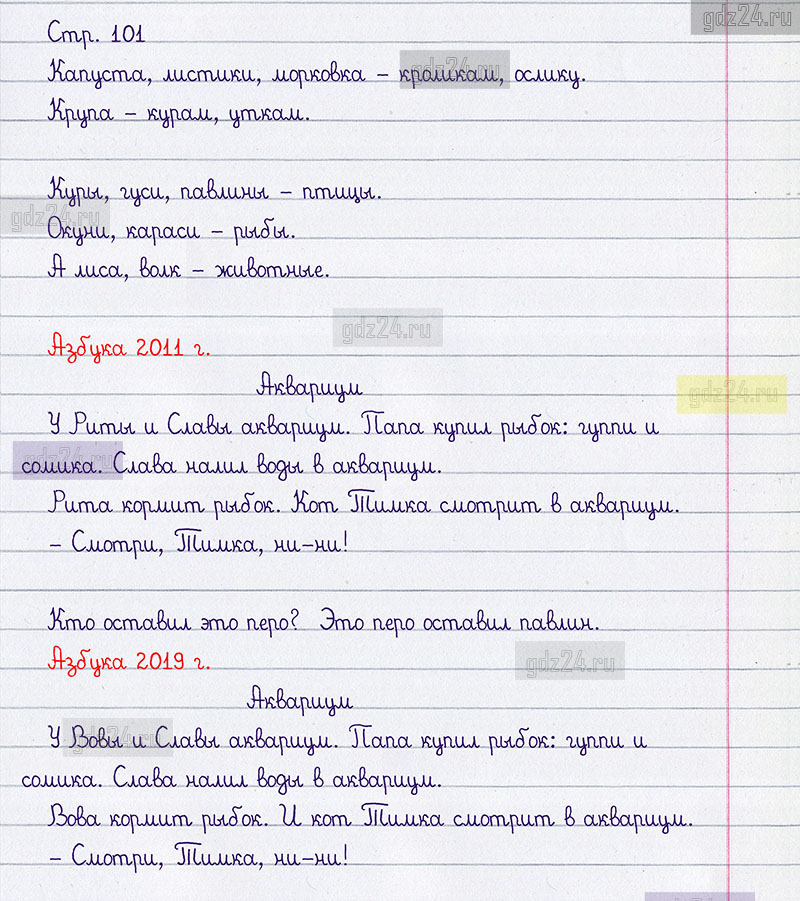 gdz24.ru
Стр. 101
Капуста, листики, морковка – кроликам, ослику.
gdz24.ru
Крупа – курам, уткам.
Куры, гуси, павлины – птицы.
gdz24.ru
Окуни, караси – рыбы.
А лиса, волк – животные.
gdz24.ru
Азбука 2011 г.
Аквариум
gdz24.ru
У Риты и Славы аквариум. Папа купил рыбок: гуппи и
сомика. Слава налил воды в аквариум.
Рита кормит рыбок. Кот Тимка смотрит в аквариум.
– Смотри, Тимка, ни-ни!
Кто оставил это перо? Это перо оставил павлин.
Азбука 2019 г.
gdz24.ru
Аквариум
У Вовы и Славы аквариум. Папа купил рыбок: гуппи и
сомика. Слава налил воды в аквариум.
Вова кормит рыбок. И кот Тимка смотрит в аквариум.
– Смотри, Тимка, ни-ни!